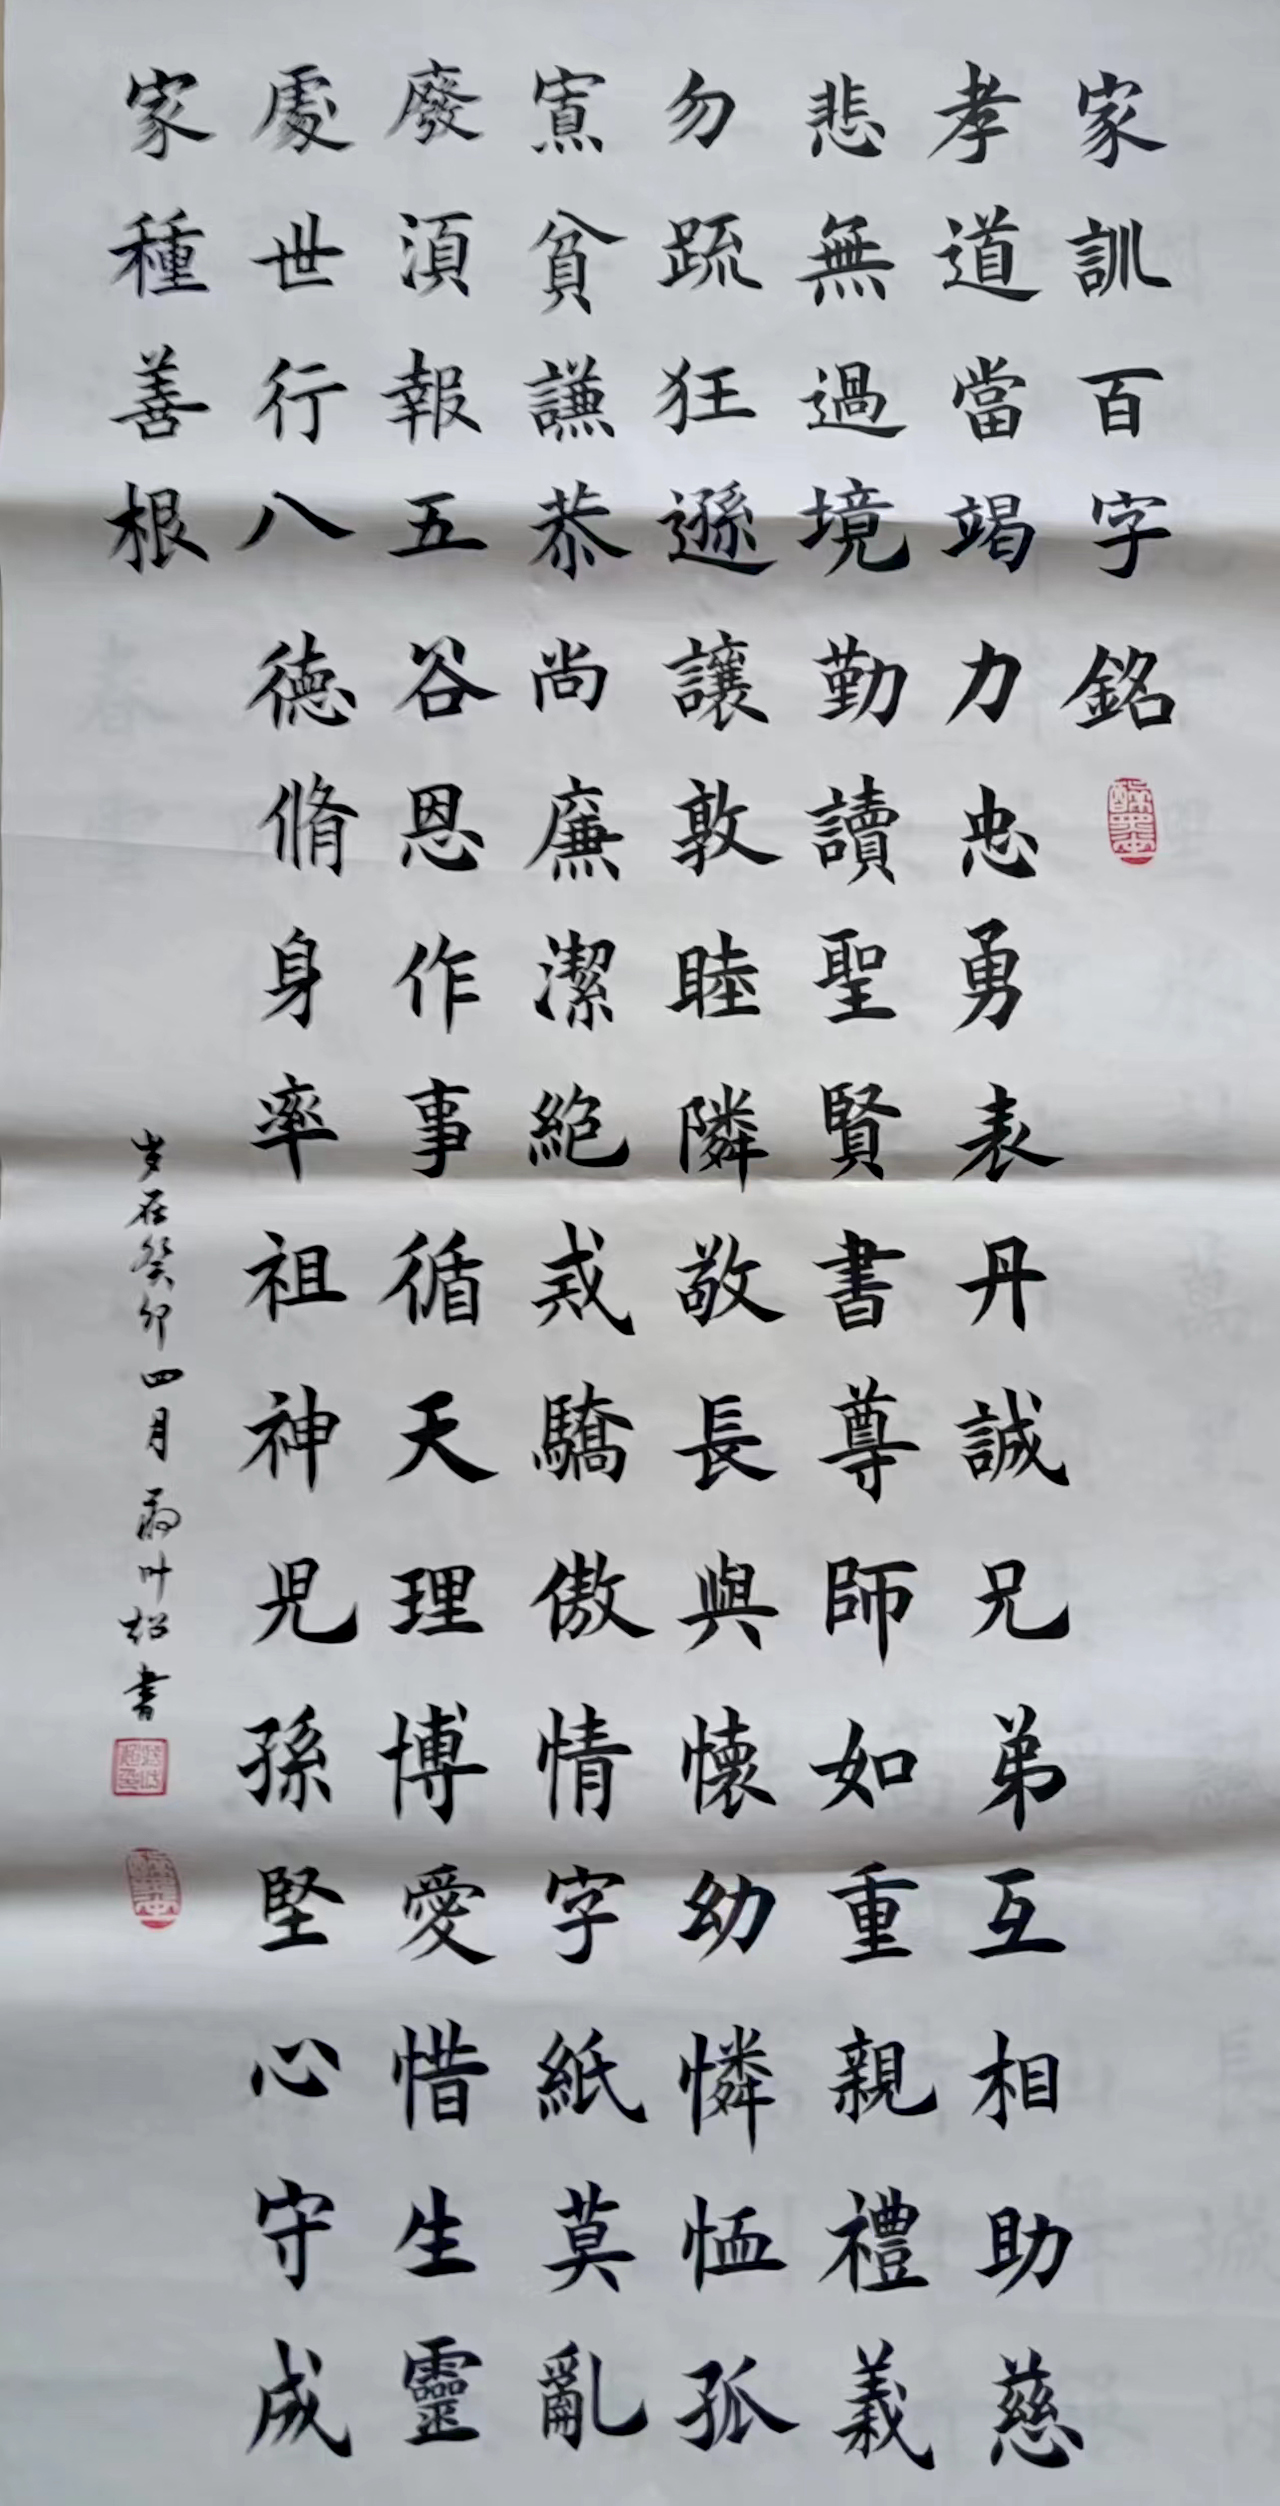 家訓百字銘
孝道當竭力忠勇表丹誠兄弟互相助慈
悲無過境勤讀聖賢書尊師如重親禮義
勿疏狂遜讓敦睦隣敬長與懷幼憐恤孤
寡貧謙恭尚廉潔絕戒驕傲情字紙莫亂
廢須報五谷恩作事循天理博愛惜生靈
處世行八德脩身率祖神児孫堅心守成
家種善根
岁在癸卯四月叶松書